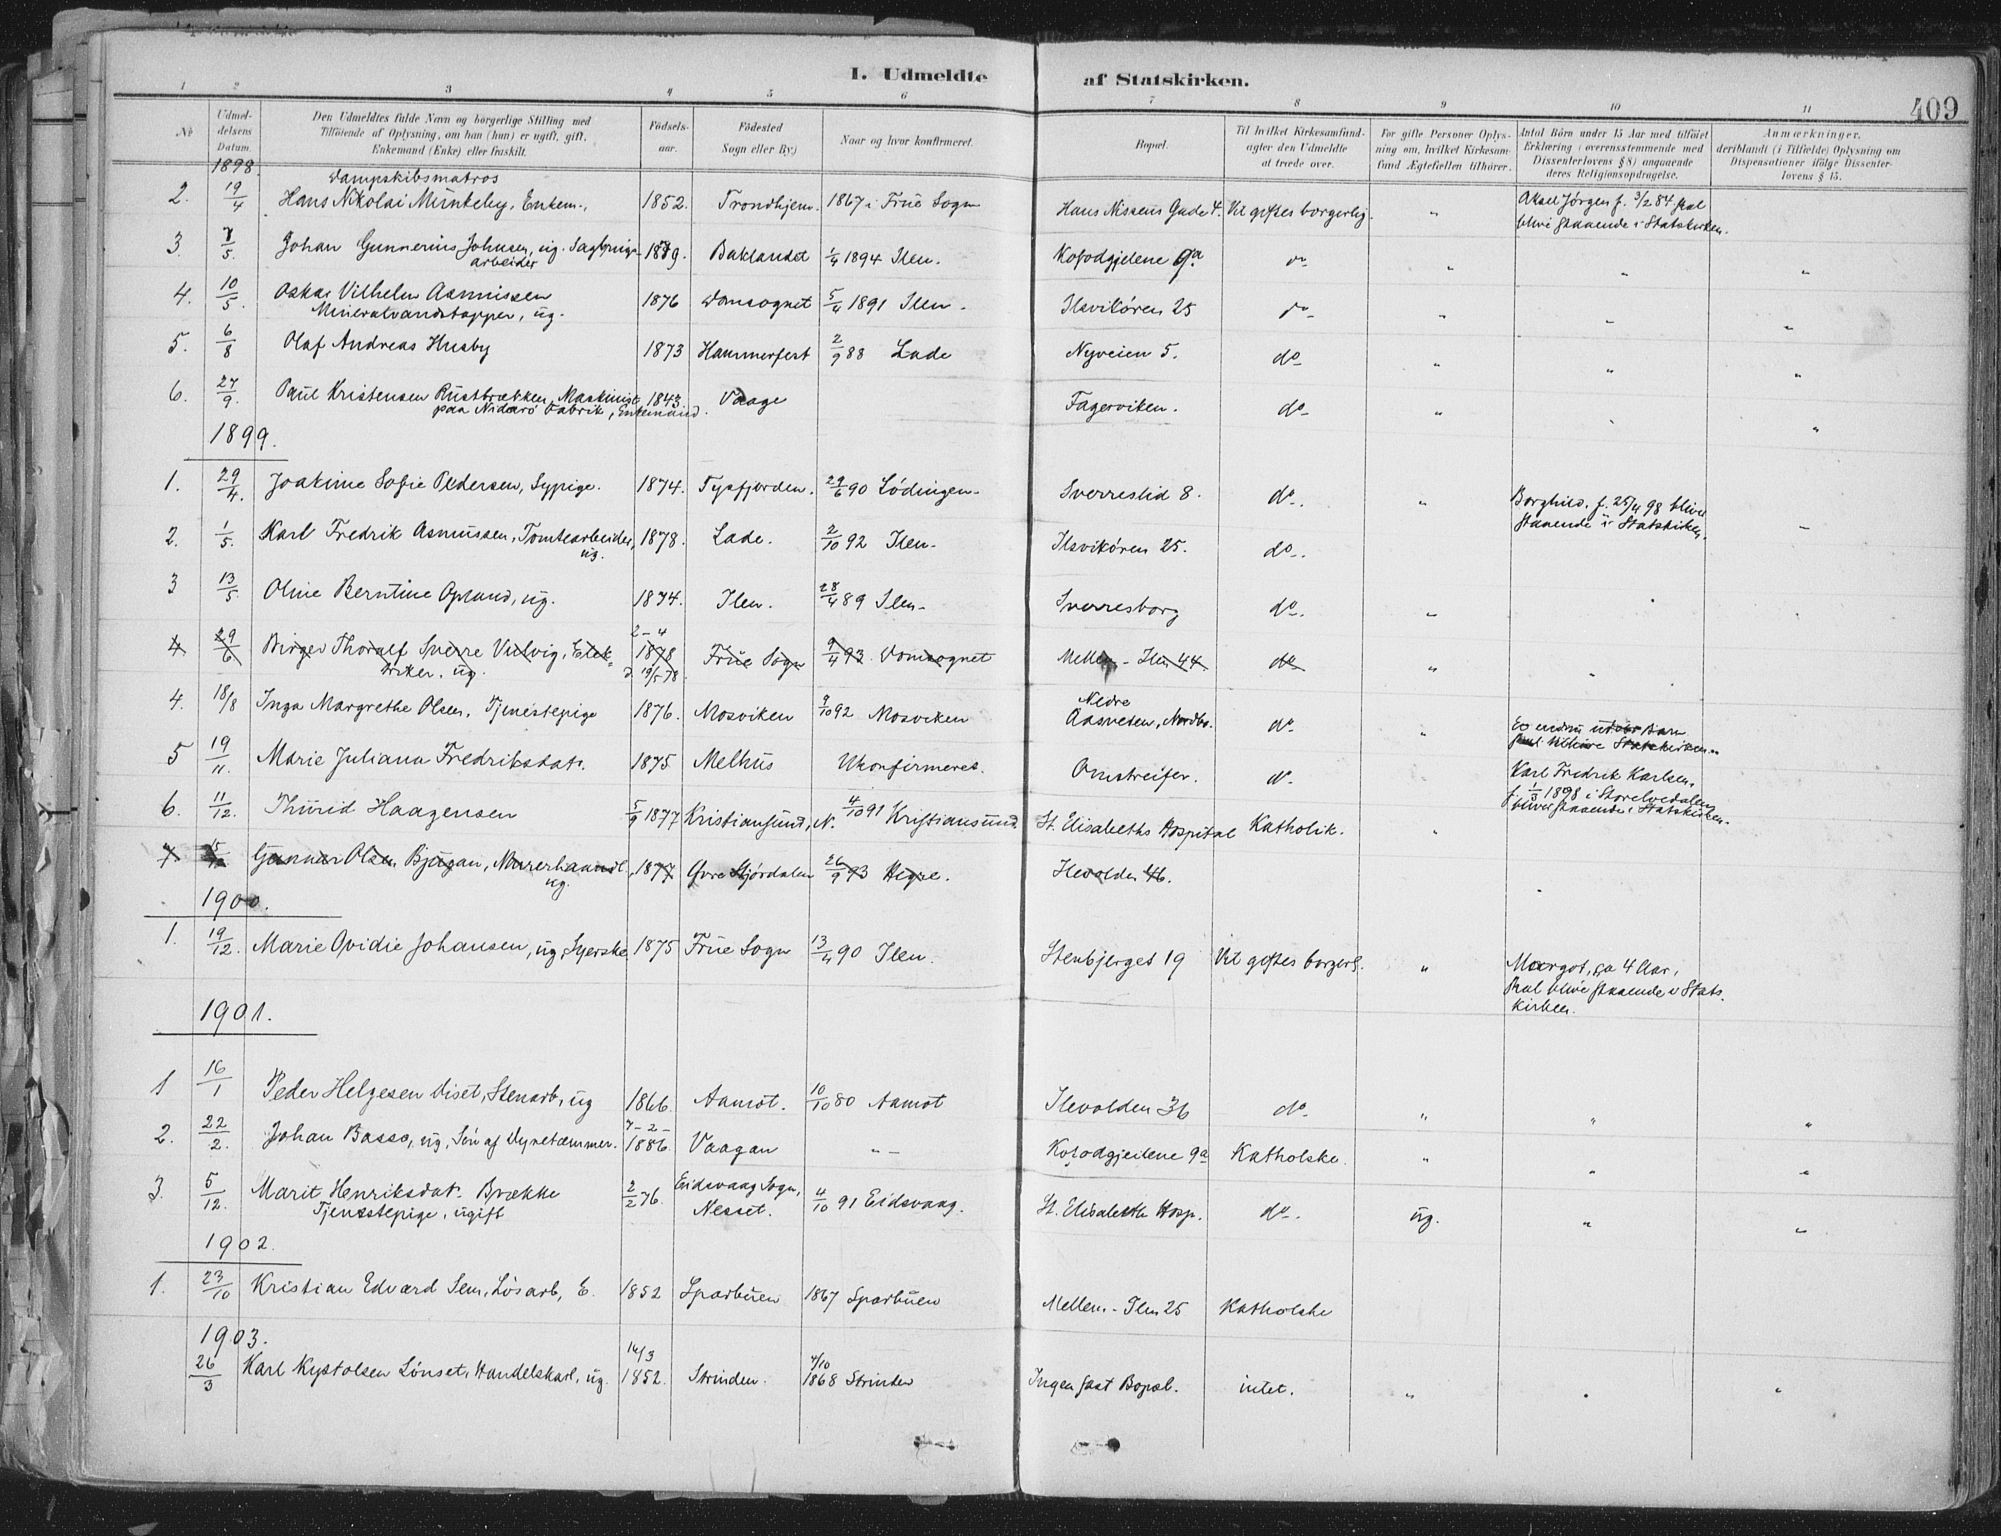 I. Udmeldte af Statskirken.
409
1 2 3 4 5 6 7 8 9 10 11
No
Udmeldelsens Datum.
Den Udmeldtes fulde Navn og borgerlige Stilling med Tilføiende af Oplysning, om han (hun) er ugift, gift, Enkemand (Enke) eller fraskilt.
Fødselsaar.
Fødested Sogn eller By.)
Naar og hvor konfirmeret.
Bopæl.
Til hvilket Kirkesamfund agter den Udmeldte at træde over.
For gifte Personer Oplysning om, hvilket Kirkesamfund Ægtefællen tilhører.
Antal Børn under 15 Aar med tilføiet Erklæring (overensstemmende med Dissenterlovens § 8) angaaende deres Religionsopdragelse.
Anmærkninger, deriblandt (i Tilfælde) Oplysning om Dispensationer ifølge Dissenterlovens § 15.
1898.
Dampskibsmatros
2. 19/4 Hans Nikolai Munkeby, Enkem., 1852. Trondhjem. 1867 i Frue Sogn Hans Nissens Gade 4. Vil giftes borgerlig. " Aksel Jørgen f. 3/2 84 skal
blive staaende i Statskirken.
3. 7/5 Johan Gunnerius Johnsen, ug. Sagbrugs- 1879. Baklandet 1/4 1894 Ilen. Kofodgjelene 9a do " " "
arbeider
4. 10/5 Oskar Vilhelm Asmussen 1876 Domsognet 5/4 1891 Ilen. Ilsvikøren 25 do " " "
Mineralvandstapper, ug.
5. 6/8 Olaf Andreas Husby 1873 Hammerfest 2/9 88 Lade Nyveien 5. do " " "
6. 27/9. Paul Kristensen Rustbrækken, Maskinist 1843. Vaage Fagerviken. do " " "
paa Nidarø Fabrik, Enkemand.
1899.
1. 29/4. Joakime Sofie Pedersen, Sypige. 1874. Tysfjorden. 29/6 90 Lødingen. Sverreslid 8. do. " Borghild, f. 25/4 98 blive
staaende i Statskirken.
2. 1/5. Karl Fredrik Asmussen, Tomtearbeider, 1878. Lade. 2/10 92 Ilen. Ilsvikøren 25. do.
ug.
3 13/5. Oline Berntine Opland, ug. 1874. Ilen. 28/4 89 Ilen. Sverresborg do. "
2-4
4 29/6 Birger Thoralf Sverre Vulvig, Elek- 1878 Frue Sogn 9/4 93 Domsognet Mellem-Ilen 44 do "
triker, ug. d. 19/5 78.
4. 18/8 Inga Margrethe Olsen, Tjenestepige 1876. Mosviken 9/10 92 Mosviken Nedre
Aasveten, Nordbo. do "
5 19/11. Marie Juliana Fredriksdatr. 1875 Melhus Ukonfirmeret. Omstreifer. do Karl Fredrik Karlsen,
f. 1/3 1898 i Storelvedalen,
bliver staaende i Statskirken.
6. 11/12. Thurid Haagensen 5/9 1877 Kristiansund, N. 4/10 91 Kristiansund. St. Elisabeths Hospital Katholik. "
7 Gunnar Olsen Bjugan, Murerhaandl. 1877 Øvre Stjørdalen 26/9 93 Hegre. Ilevolden 46.
ug.
1900.
1. 19/12. Marie Ovidie Johansen, ug, Syerske. 1875 Frue Sogn 13/4 90 Ilen. Stenbjerget 19 Vil giftes borgerl. " Margot, ca 4 Aar,
skal blive staaende i Stats
kirken.
1901.
1 16/1 Peder Helgesen Diset, Stenarb, ug 1866. Aamot. 10/10 80 Aamot Ilevolden 36 do. " " "
2. 22/2. Johan Basso, ug, Søn af Dyretæmmer. 7-2-1886. Vaagan " - Kofodgjeilene 9a Katholske. " " "
3. 5/12. Marit Henriksdat. Brække 2/2 76. Eidsvaag Sogn, Nesset. 4/10 91 Eidsvaag. St. Elisabeth Hosp. do. ug. " "
Tjenestepige, ugift
1902.
1. 23/10 Kristian Edvard Sem, Løsarb, E. 1852 Sparbuen 1867 Sparbuen Mellem-Ilen 25 Katholske
1903.
26/3 Karl Kystolsen Lønset, Handelskarl, ug. 14/3 1852. Strinden. 4/10 1868 Strinden Ingen fast Bopæl. intet. " " "